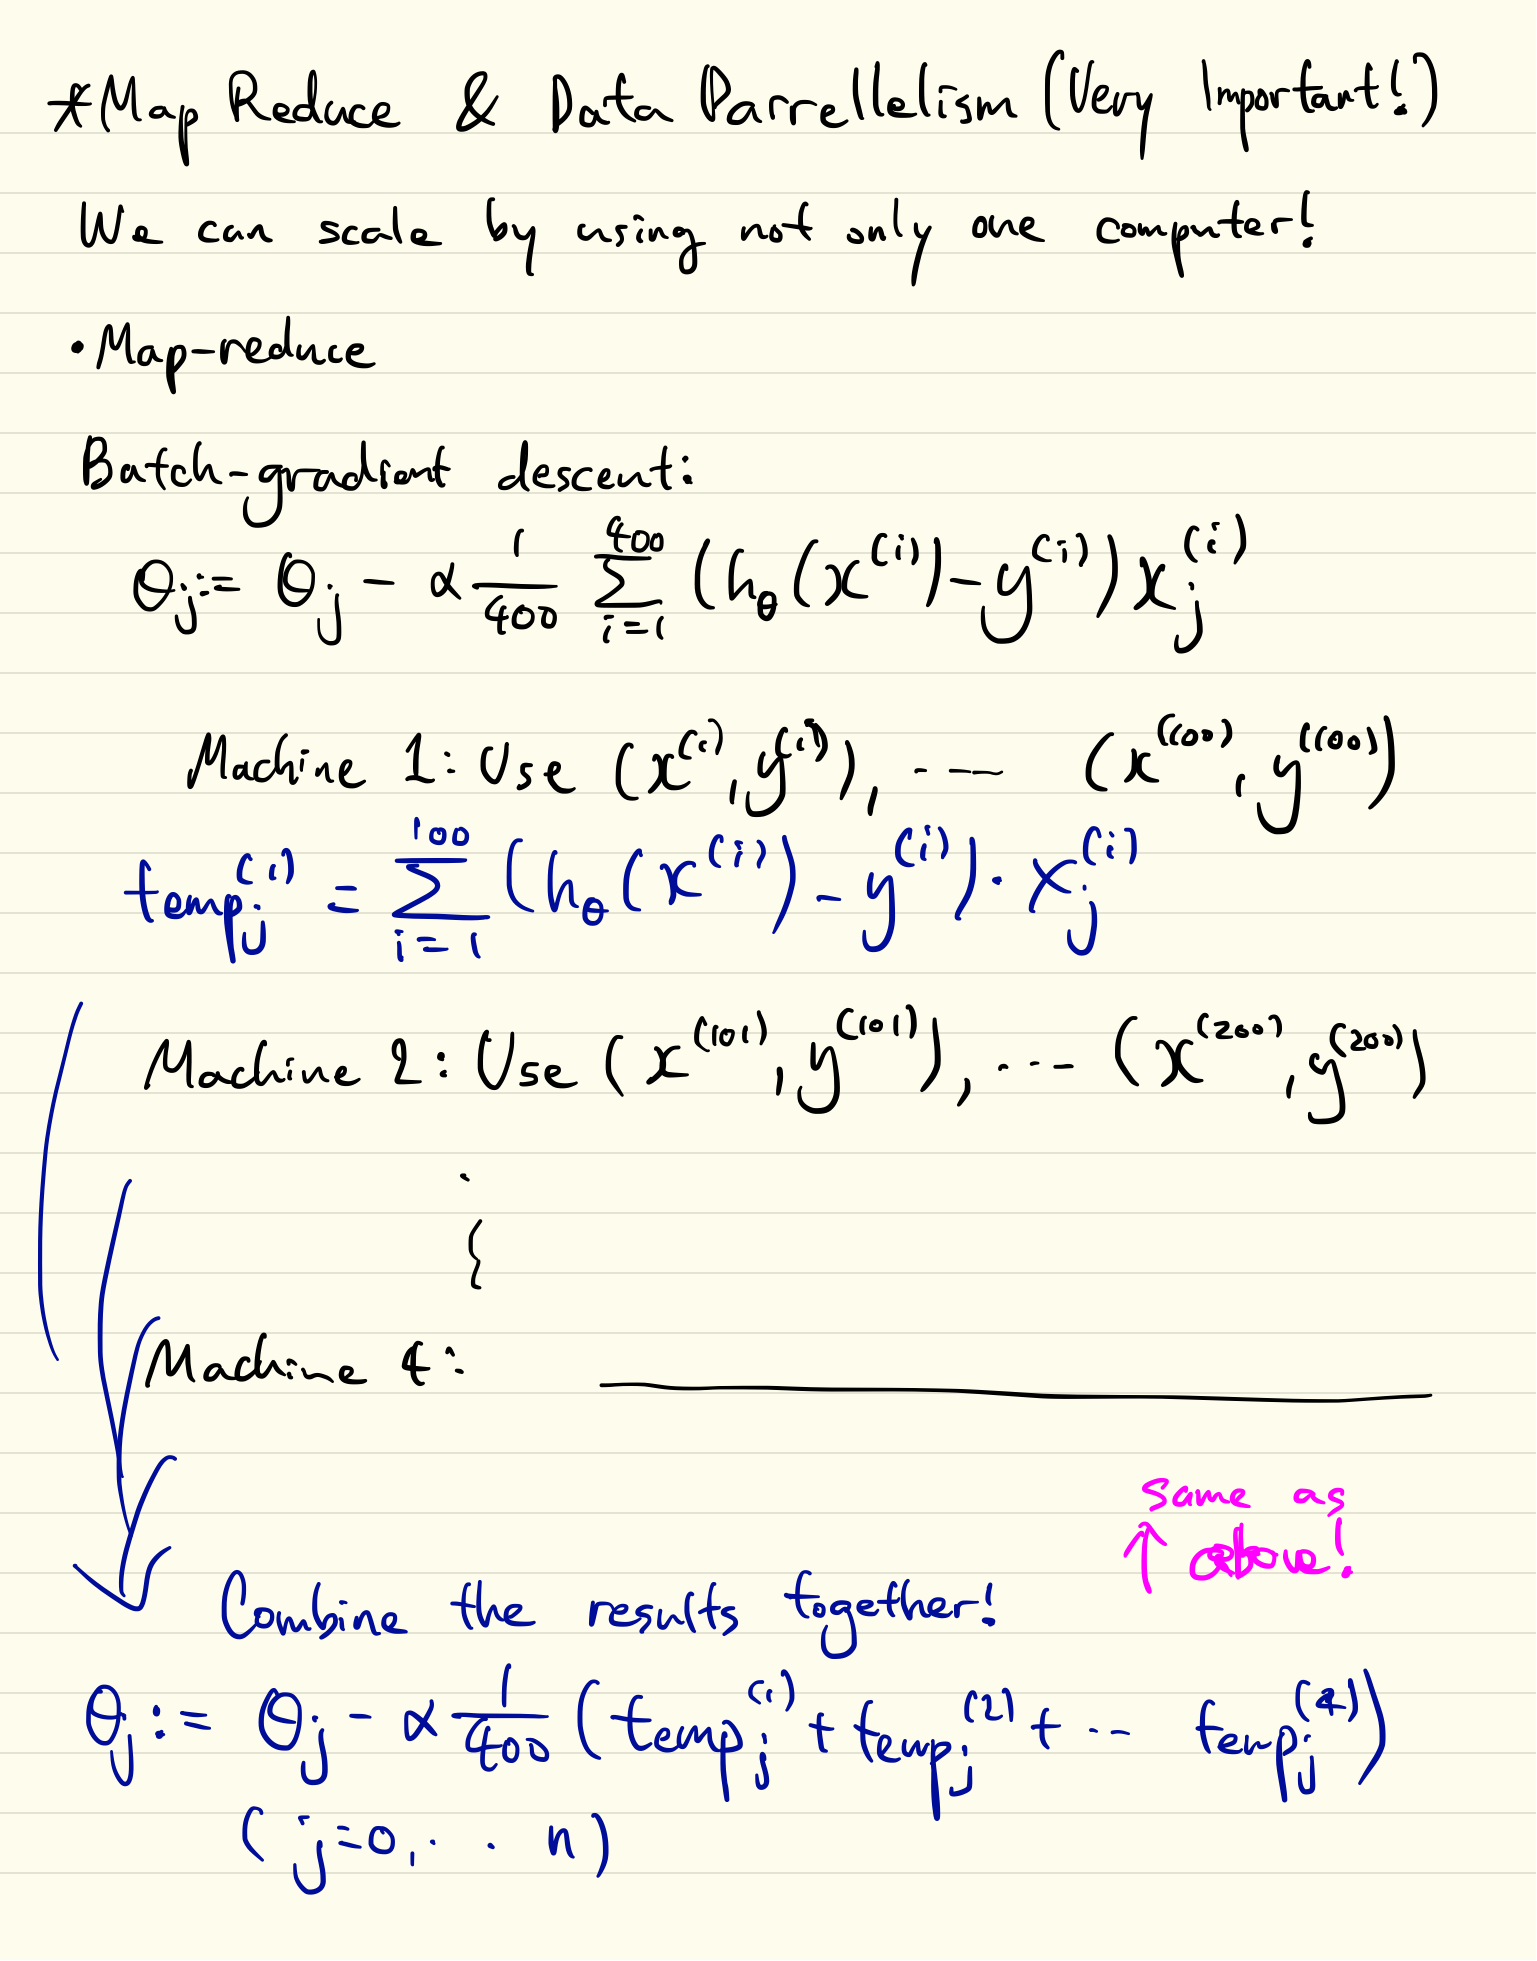 *Map Reduce & Data Parrellelism (Very Important!)
We can scale by using not only one computer!
• Map-reduce
Batch-gradient descent:
θ_j := θ_j - α 1/400 Σ_{i=1}^{400} (h_θ(x^{(i)}) - y^{(i)}) x_j^{(i)}
Machine 1: Use (x^{(1)}, y^{(1)}), ... (x^{(100)}, y^{(100)})
temp_j^{(1)} = Σ_{i=1}^{100} (h_θ(x^{(i)}) - y^{(i)}) · x_j^{(i)}
Machine 2: Use (x^{(101)}, y^{(101)}), ... (x^{(200)}, y^{(200)})
Machine 4:
same as
↑ above!
Combine the results together!
θ_j := θ_j - α 1/400 (temp_j^{(1)} + temp_j^{(2)} + ... temp_j^{(4)})
(j=0, . . n)